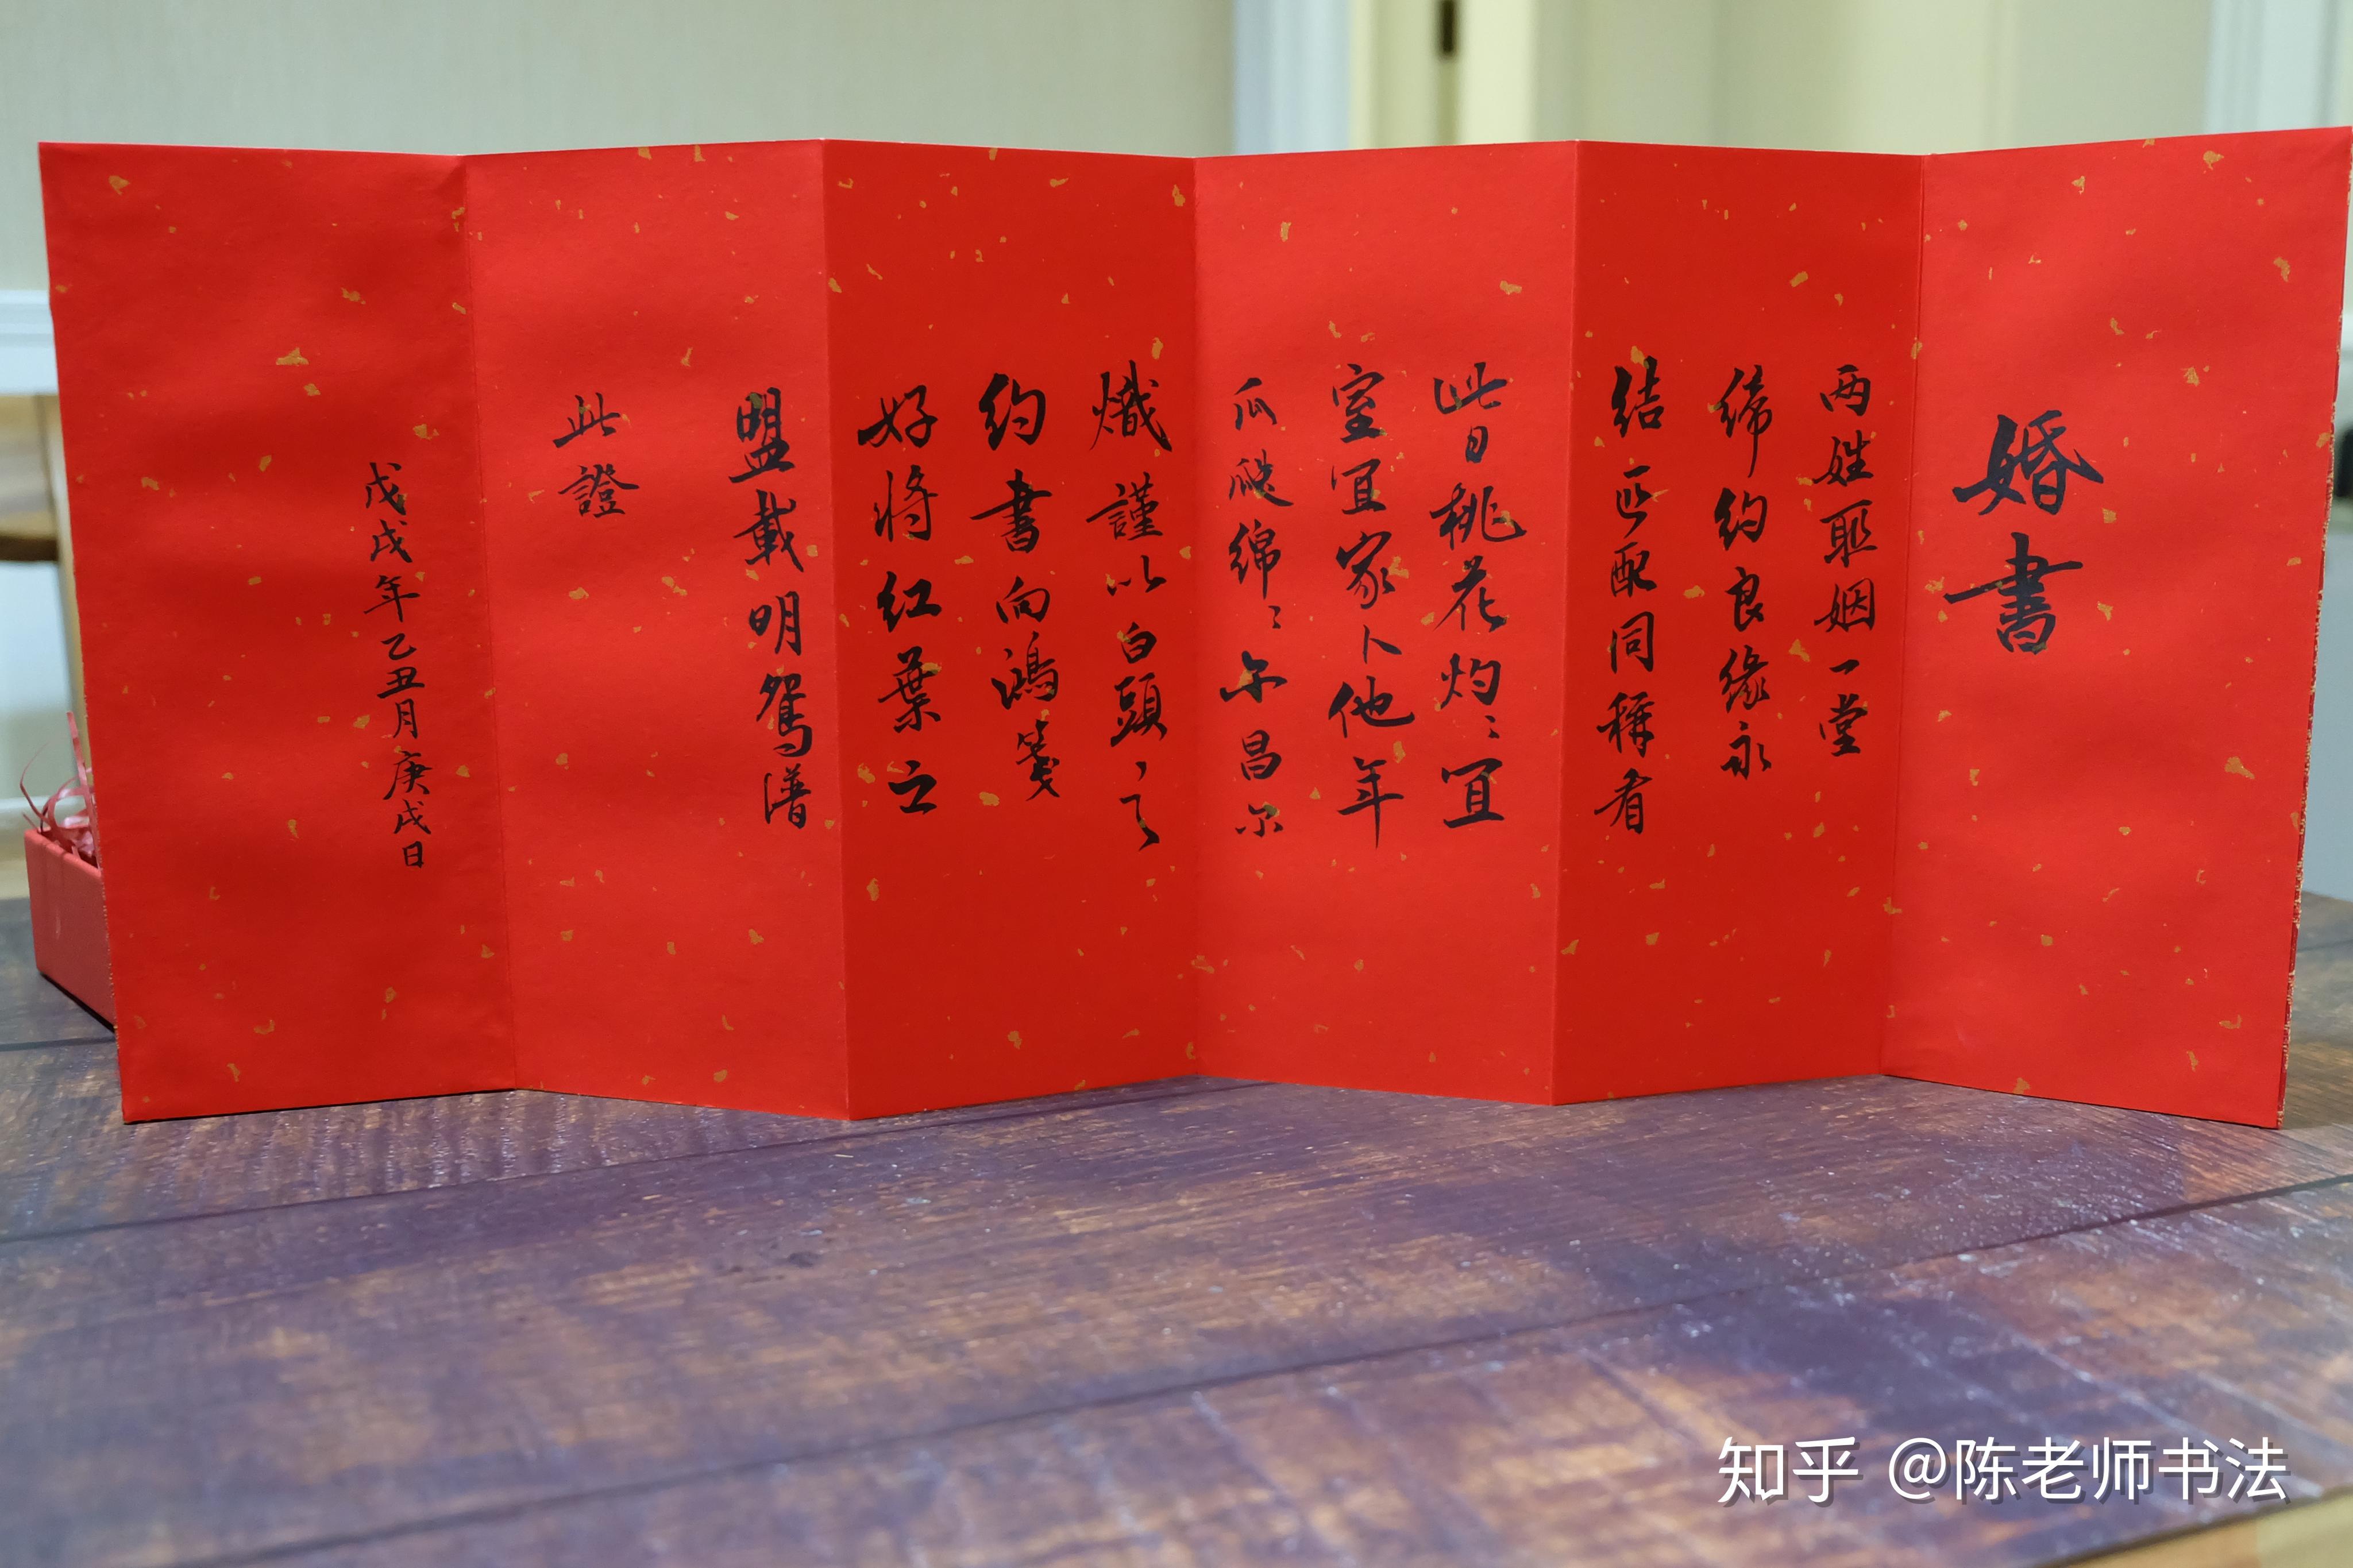 婚書
两姓联姻一堂
缔约良缘永
结匹配同稱看
此日桃花灼〻宜
室宜家卜他年
瓜瓞绵〻尔昌尔
熾謹以白頭之
约書向鴻箋
好将红葉之
盟載明鸳谱
此證
戊戌年乙丑月庚戌日
知乎 @陈老师书法